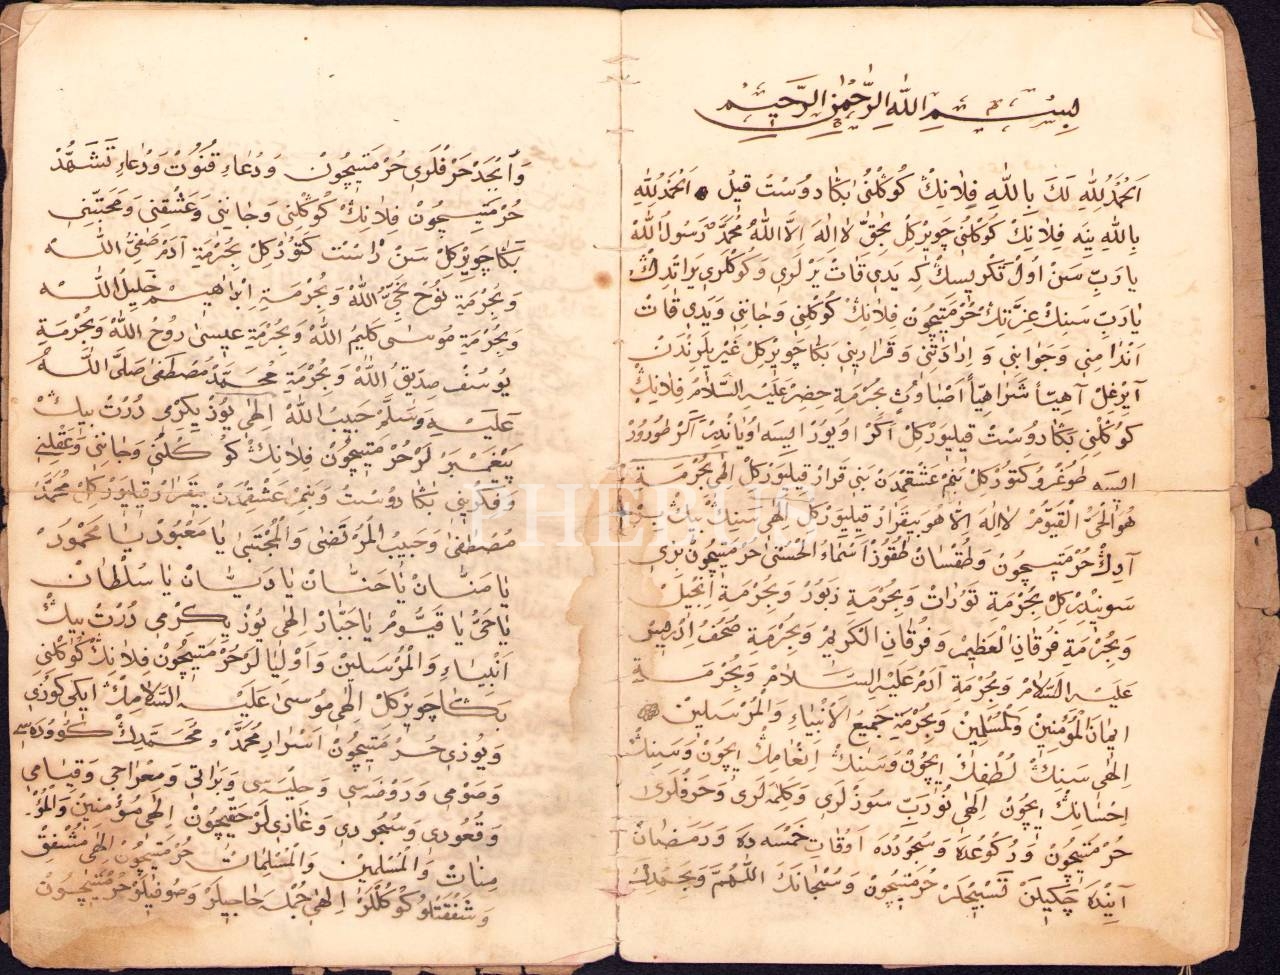 بِسْمِ اللّٰهِ الرَّحْمٰنِ الرَّحِيمِ
اَلْحَمْدُ لِلّٰهِ لَكَ بِاللّٰهِ فِلَانِكْ كُوكْلُنُى بَكَا دُوسْتْ قِيلْ اَلْحَمْدُ لِلّٰهِ
بِاللّٰهِ فِلَانِكْ كَوُكْلُنُى چَوِيرْكِلْ بِحَقِّ لَا اِلٰهَ اِلَّا اللّٰهُ مُحَمَّدٌ رَسُولُ اللّٰهْ
يَا رَبِّ سَنْ اُولْ تَكْرِيسِكْ كِه يَدِى قَاتْ يَرْلَرِى وَ كُوكْلَرِى يَرَاتْدِكْ
يَا رَبِّ سَنِكْ عِزَّتِكْ حُرْمَتِيچُونْ فِلَانِكْ كَوُكْلُنِى وَجَانِنِى وَيَدِى قَاتْ
وَ قَرَارِينِى بَكَا چَوِيرْكِلْ غَيْرِيلَرِنْدَنْ
آيِرْغِلْ آهِيًّا شَرَاهِيًّا اَصْبَاوُثْ بِحُرْمَةِ حِضِرْ عَلَيْهِ السَّلَامْ فِلَانِكْ
كَوُكْلُنِى بَكَا دُوسْتْ قِيلِيوَرْكِلْ اَكَرْ اُويُورْ اِيسَه اُويَانْدِرْ اَكَرْ طُورُورْ
اِيسَه طُوغْرُو كَتُورْكِلْ بَنِمْ عَشْقِمْدَنْ بَنِى قَرَارْ قِيلِيوَرْكِلْ اِلٰهِى بِحُرْمَةِ
هُوَ الْحَىُّ الْقَيُّومْ لَا اِلٰهَ اِلَّا هُوَ بِيقَرَارْ قِيلِيوَرْكِلْ اِلٰهِى سَنِكْ بِيكْ بِرْ
آدِكْ حُرْمَتِيچُونْ وَ طُقْسَانْ طُقُوزْ اَسْمَاءُ الْحُسْنٰى حُرْمَتِيچُونْ
سَوِينْدِرْكِلْ بِحُرْمَةِ تَوْرَاتْ وَ بِحُرْمَةِ زَبُورْ وَ بِحُرْمَةِ اِنْجِيلْ
وَ بِحُرْمَةِ فُرْقَانِ الْعَظِيمْ وَ فُرْقَانِ الْكَرِيمْ وَ بِحُرْمَةِ صُحُفُ اِدْرِيسْ
عَلَيْهِ السَّلَامْ وَ بِحُرْمَةِ آدَمْ عَلَيْهِ السَّلَامْ وَ بِحُرْمَةِ
اِيمَانَ الْمُؤْمِنِينْ وَالْمُسْلِمِينْ وَ بِحُرْمَةِ جَمِيعِ الْاَنْبِيَاءِ وَالْمُرْسَلِينْ
اِلٰهِى سَنِكْ لُطْفِكْ اِيچُونْ وَ سَنِكْ اِنْعَامِكْ اِيچُونْ وَ سَنِكْ
اِحْسَانِكْ اِيچُونْ اِلٰهِى سُوزْلَرِى وَ كَلِمَه لَرِى وَ حَرْفْلَرِى
حُرْمَتِيچُونْ وَ رُكُوعُدَه وَ سُجُودْدَه اَوْقَاتِ خَمْسَه دَه وَ رَمَضَانْ
آيِنْدَه چَكِيلَنْ تَسْبِيحْلَرْ حُرْمَتِيچُونْ وَ سُبْحَانَكَ اللّٰهُمَّ وَ بِحَمْدِكَ
وَ اَبْجَدْ حَرْفْلَرِى حُرْمَتِيچُونْ وَ دُعَاءِ قُنُوتْ وَ دُعَاءِ تَشَهُّدْ
حُرْمَتِيچُونْ فِلَانِكْ كُوكْلُنِى وَ جَانِنِى وَ عَشْقِنِى وَ مَحَبَّتِنِى
بَكَا چَوِيرْكِلْ سَنْ رَاسْتْ كَتُورْكِلْ بِحُرْمَةِ آدَمْ صَفِىُّ اللّٰهْ
وَ بِحُرْمَةِ نُوحْ نَجِىُّ اللّٰهْ وَ بِحُرْمَةِ اِبْرَاهِيمْ خَلِيلُ اللّٰهْ
وَ بِحُرْمَةِ مُوسٰى كَلِيمُ اللّٰهْ وَ بِحُرْمَةِ عِيسٰى رُوحُ اللّٰهْ وَ بِحُرْمَةِ
يُوسُفْ صِدِّيقُ اللّٰهْ وَ بِحُرْمَةِ مُحَمَّدْ مُصْطَفٰى صَلَّى اللّٰهُ
عَلَيْهِ وَسَلَّمْ حَبِيبُ اللّٰهْ اِلٰهِى يُوزْ يِكِرْمِى دُرْتْ بِيكْ
پَيْغَمْبَرْلَرْ حُرْمَتِيچُونْ فِلَانِكْ كُوكْلُنِى وَ جَانِنِى وَ عَقْلِنِى
وَ فِكْرِينِى بَكَا دُوسْتْ وَ بَنِمْ عَشْقِمْدَنْ بِيقَرَارْ قِيلِيوَرْكِلْ مُحَمَّدْ
مُصْطَفٰى وَ حَبِيبُ الْمُرْتَضٰى وَالْمُجْتَبٰى يَا مَعْبُودْ يَا مَحْمُودْ
يَا مَنَّانْ يَا حَنَّانْ يَا دَيَّانْ يَا سُلْطَانْ
يَا حَىُّ يَا قَيُّومْ يَا جَبَّارْ اِلٰهِى يُوزْ يِكِرْمِى دُرْتْ بِيكْ
اَنْبِيَاءِ وَالْمُرْسَلِينْ وَ اَوْلِيَا لَرْ حُرْمَتِيچُونْ فِلَانِكْ كَوُكْلُنِى
بَكَا چَوِيرْكِلْ اِلٰهِى مُوسٰى عَلَيْهِ السَّلَامِكْ اِيكِى كُوزِى
وَ يُوزِى حُرْمَتِيچُونْ اَسْرَارِ مُحَمَّدْ وَ مُحَمَّدِكْ
وَ صَوْمِى وَ رَوْضَه سِى وَ حِلْيَه سِى وَ بَرَاتِى وَ مِعْرَاجِى وَ قِيَامِى
وَ قُعُودِى وَ سُجُودِى وَ غَازِى لَرْ حَقِّيچُونْ اِلٰهِى مُؤْمِنِينْ وَالْمُؤْ
مِنَاتْ وَالْمُسْلِمِينْ وَالْمُسْلِمَاتْ حُرْمَتِيچُونْ اِلٰهِى مُشْفِقْ
وَ شَفَقَتْلُو كُوكُلْلَرْ اِلٰهِى جُمْلَه حَاجِيلَرْ وَ صُوفِيلَرْ حُرْمَتِيچُونْ
PHEBUS